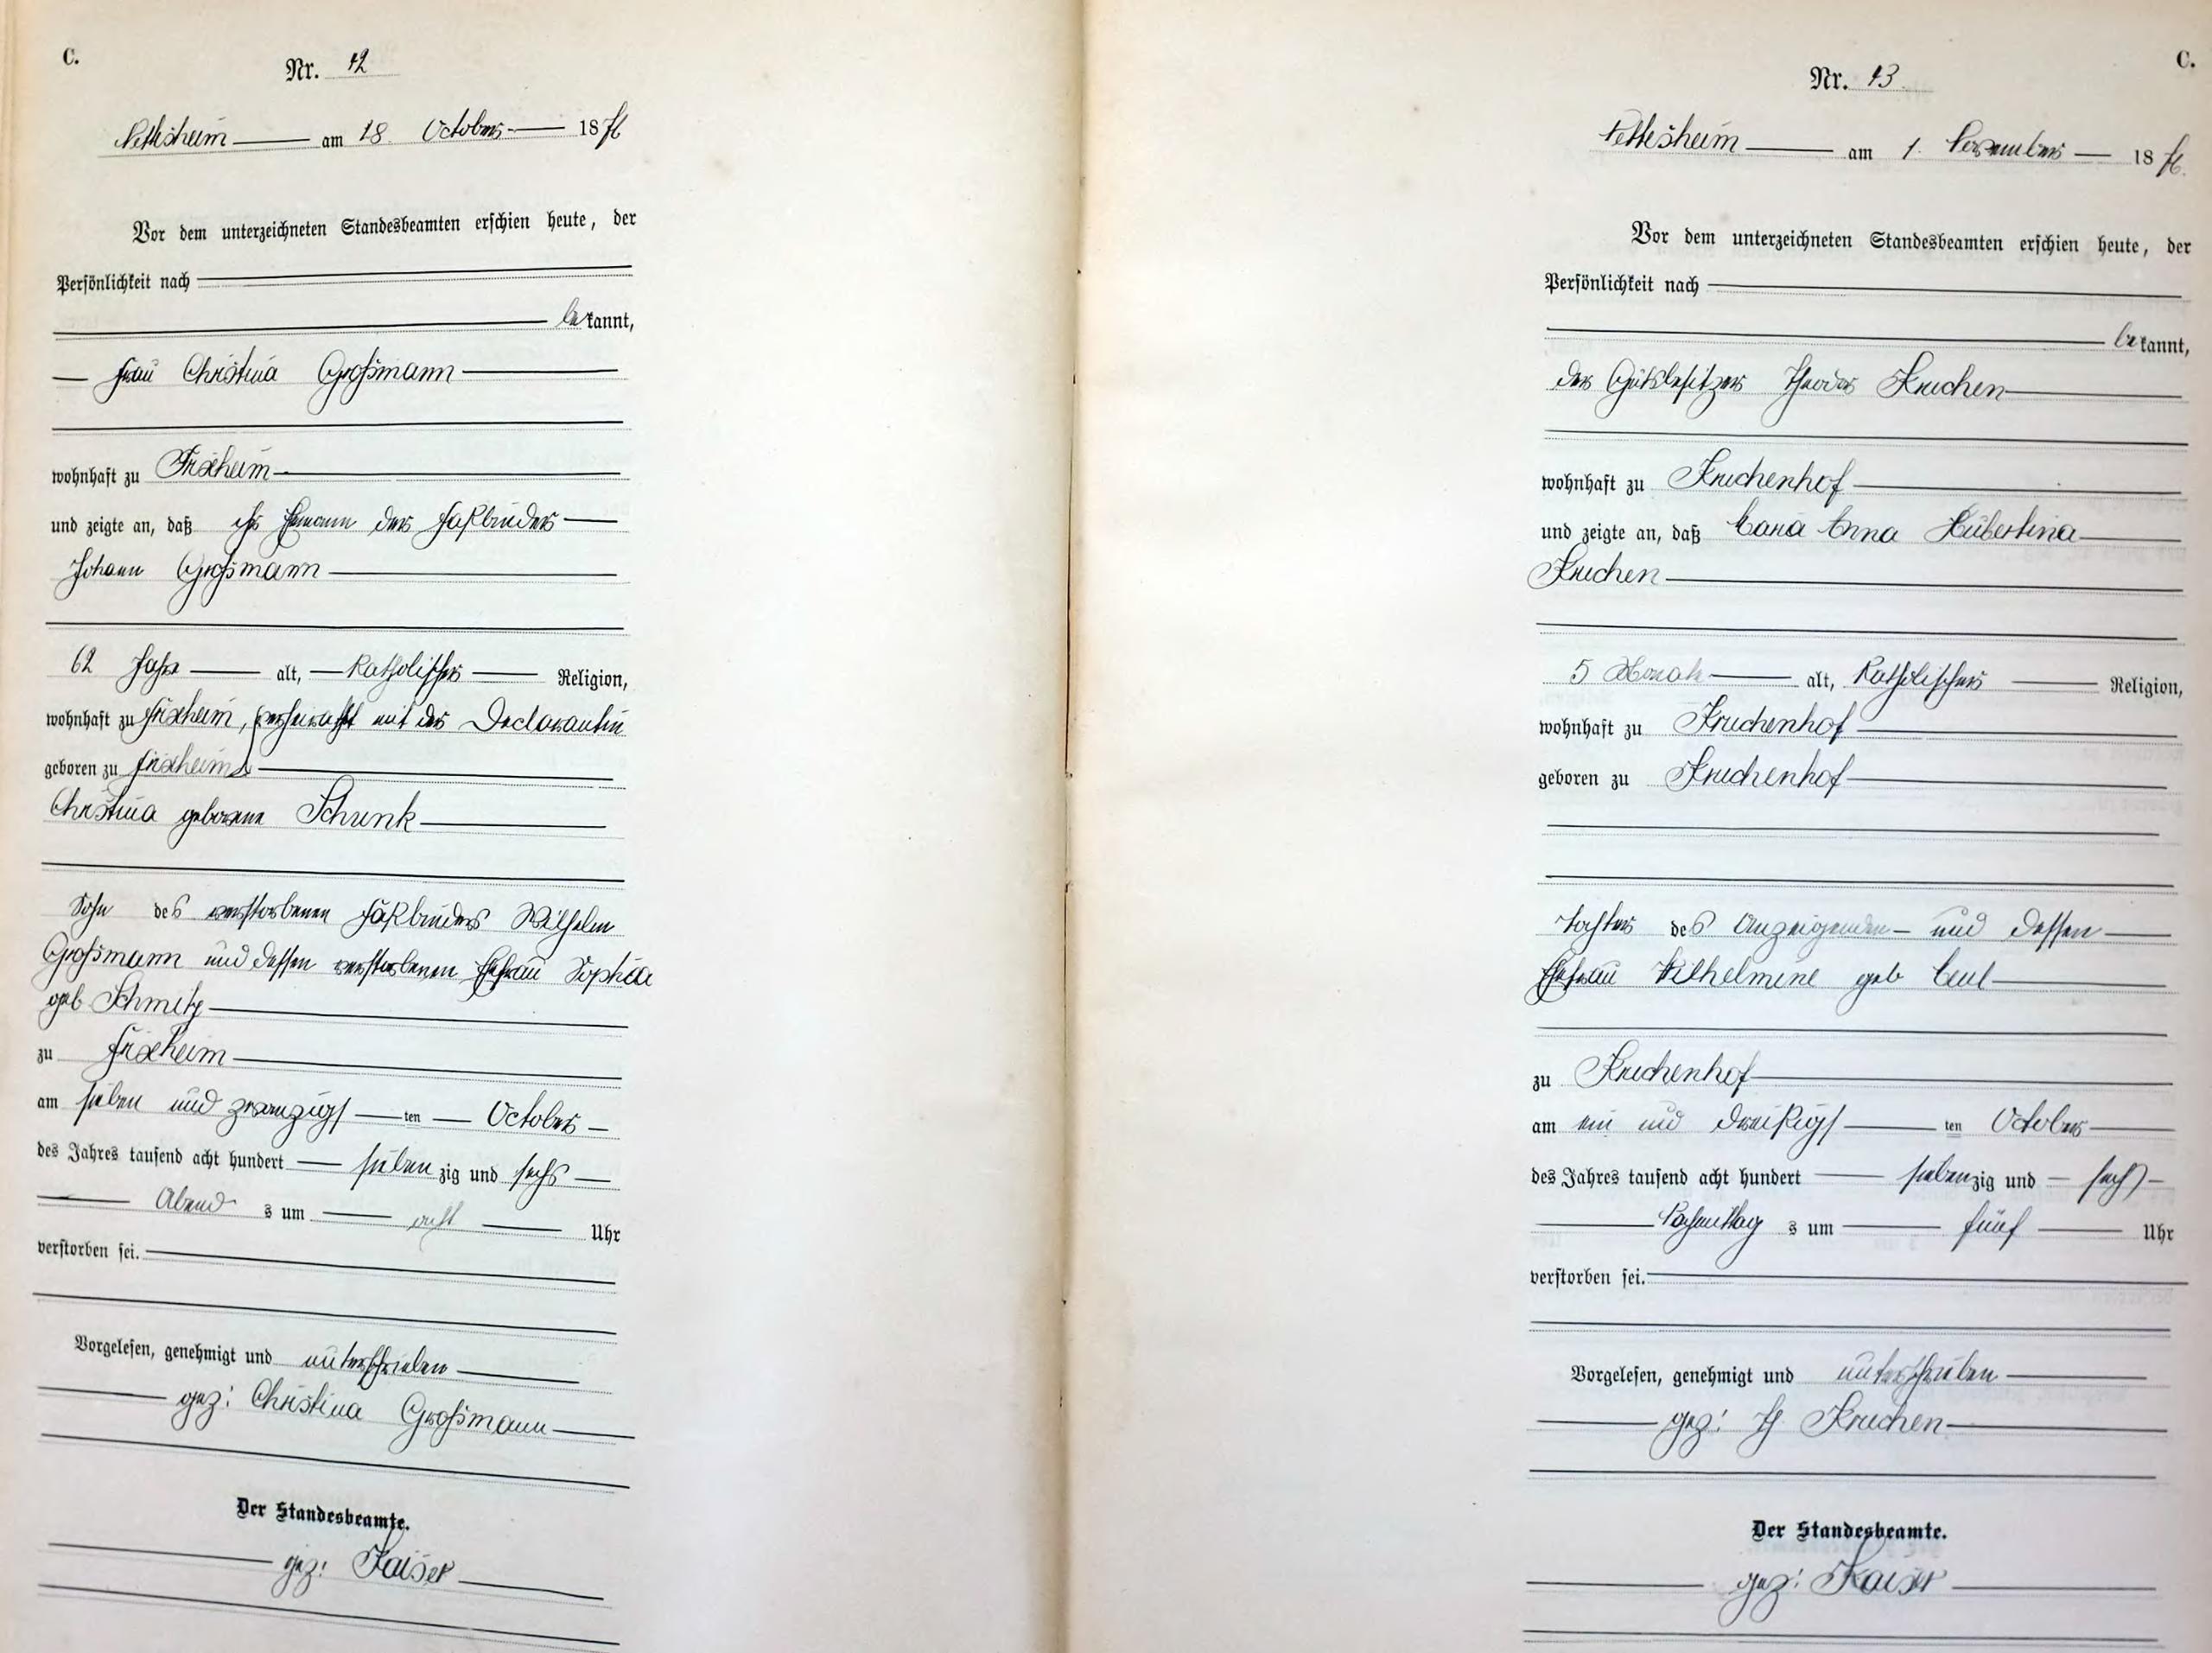 C.
Nr. 42
Nettesheim am 28. October 1876
Vor dem unterzeichneten Standesbeamten erschien heute, der
Persönlichkeit nach
bekannt,
Frau Christina Großmann
wohnhaft zu Frixheim
und zeigte an, daß ihr Ehemann der Faßbinder
Johann Großmann
62 Jahre alt, katholischer Religion,
wohnhaft zu Frixheim, verheirathet mit der Declarantin
geboren zu Frixheim
Christina geborene Schunk
Sohn des verstorbenen Faßbinders Wilhelm
Großmann und dessen verstorbenen Ehefrau Sophia
geb Schmitz
zu Frixheim
am sieben und zwanzigsten October
des Jahres tausend acht hundert siebenzig und sechs
Abends um acht Uhr
verstorben sei.
Vorgelesen, genehmigt und unterschrieben
gez: Christina Großmann
Der Standesbeamte.
gez: Kaiser
C.
Nr. 43
Nettesheim am 1. November 1876.
Vor dem unterzeichneten Standesbeamten erschien heute, der
Persönlichkeit nach
bekannt,
der Gutsbesitzer Theodor Kruchen
wohnhaft zu Kruchenhof
und zeigte an, daß Maria Anna Hubertina
Kruchen
5 Monate alt, katholischer Religion,
wohnhaft zu Kruchenhof
geboren zu Kruchenhof
Tochter des Anzeigenden und dessen
Ehefrau Wilhelmine geb
zu Kruchenhof
am ein und dreißigsten October
des Jahres tausend acht hundert siebenzig und sechs
Nachmittags um fünf Uhr
verstorben sei.
Vorgelesen, genehmigt und unterschrieben
gez: Th Kruchen
Der Standesbeamte.
gez: Kaiser